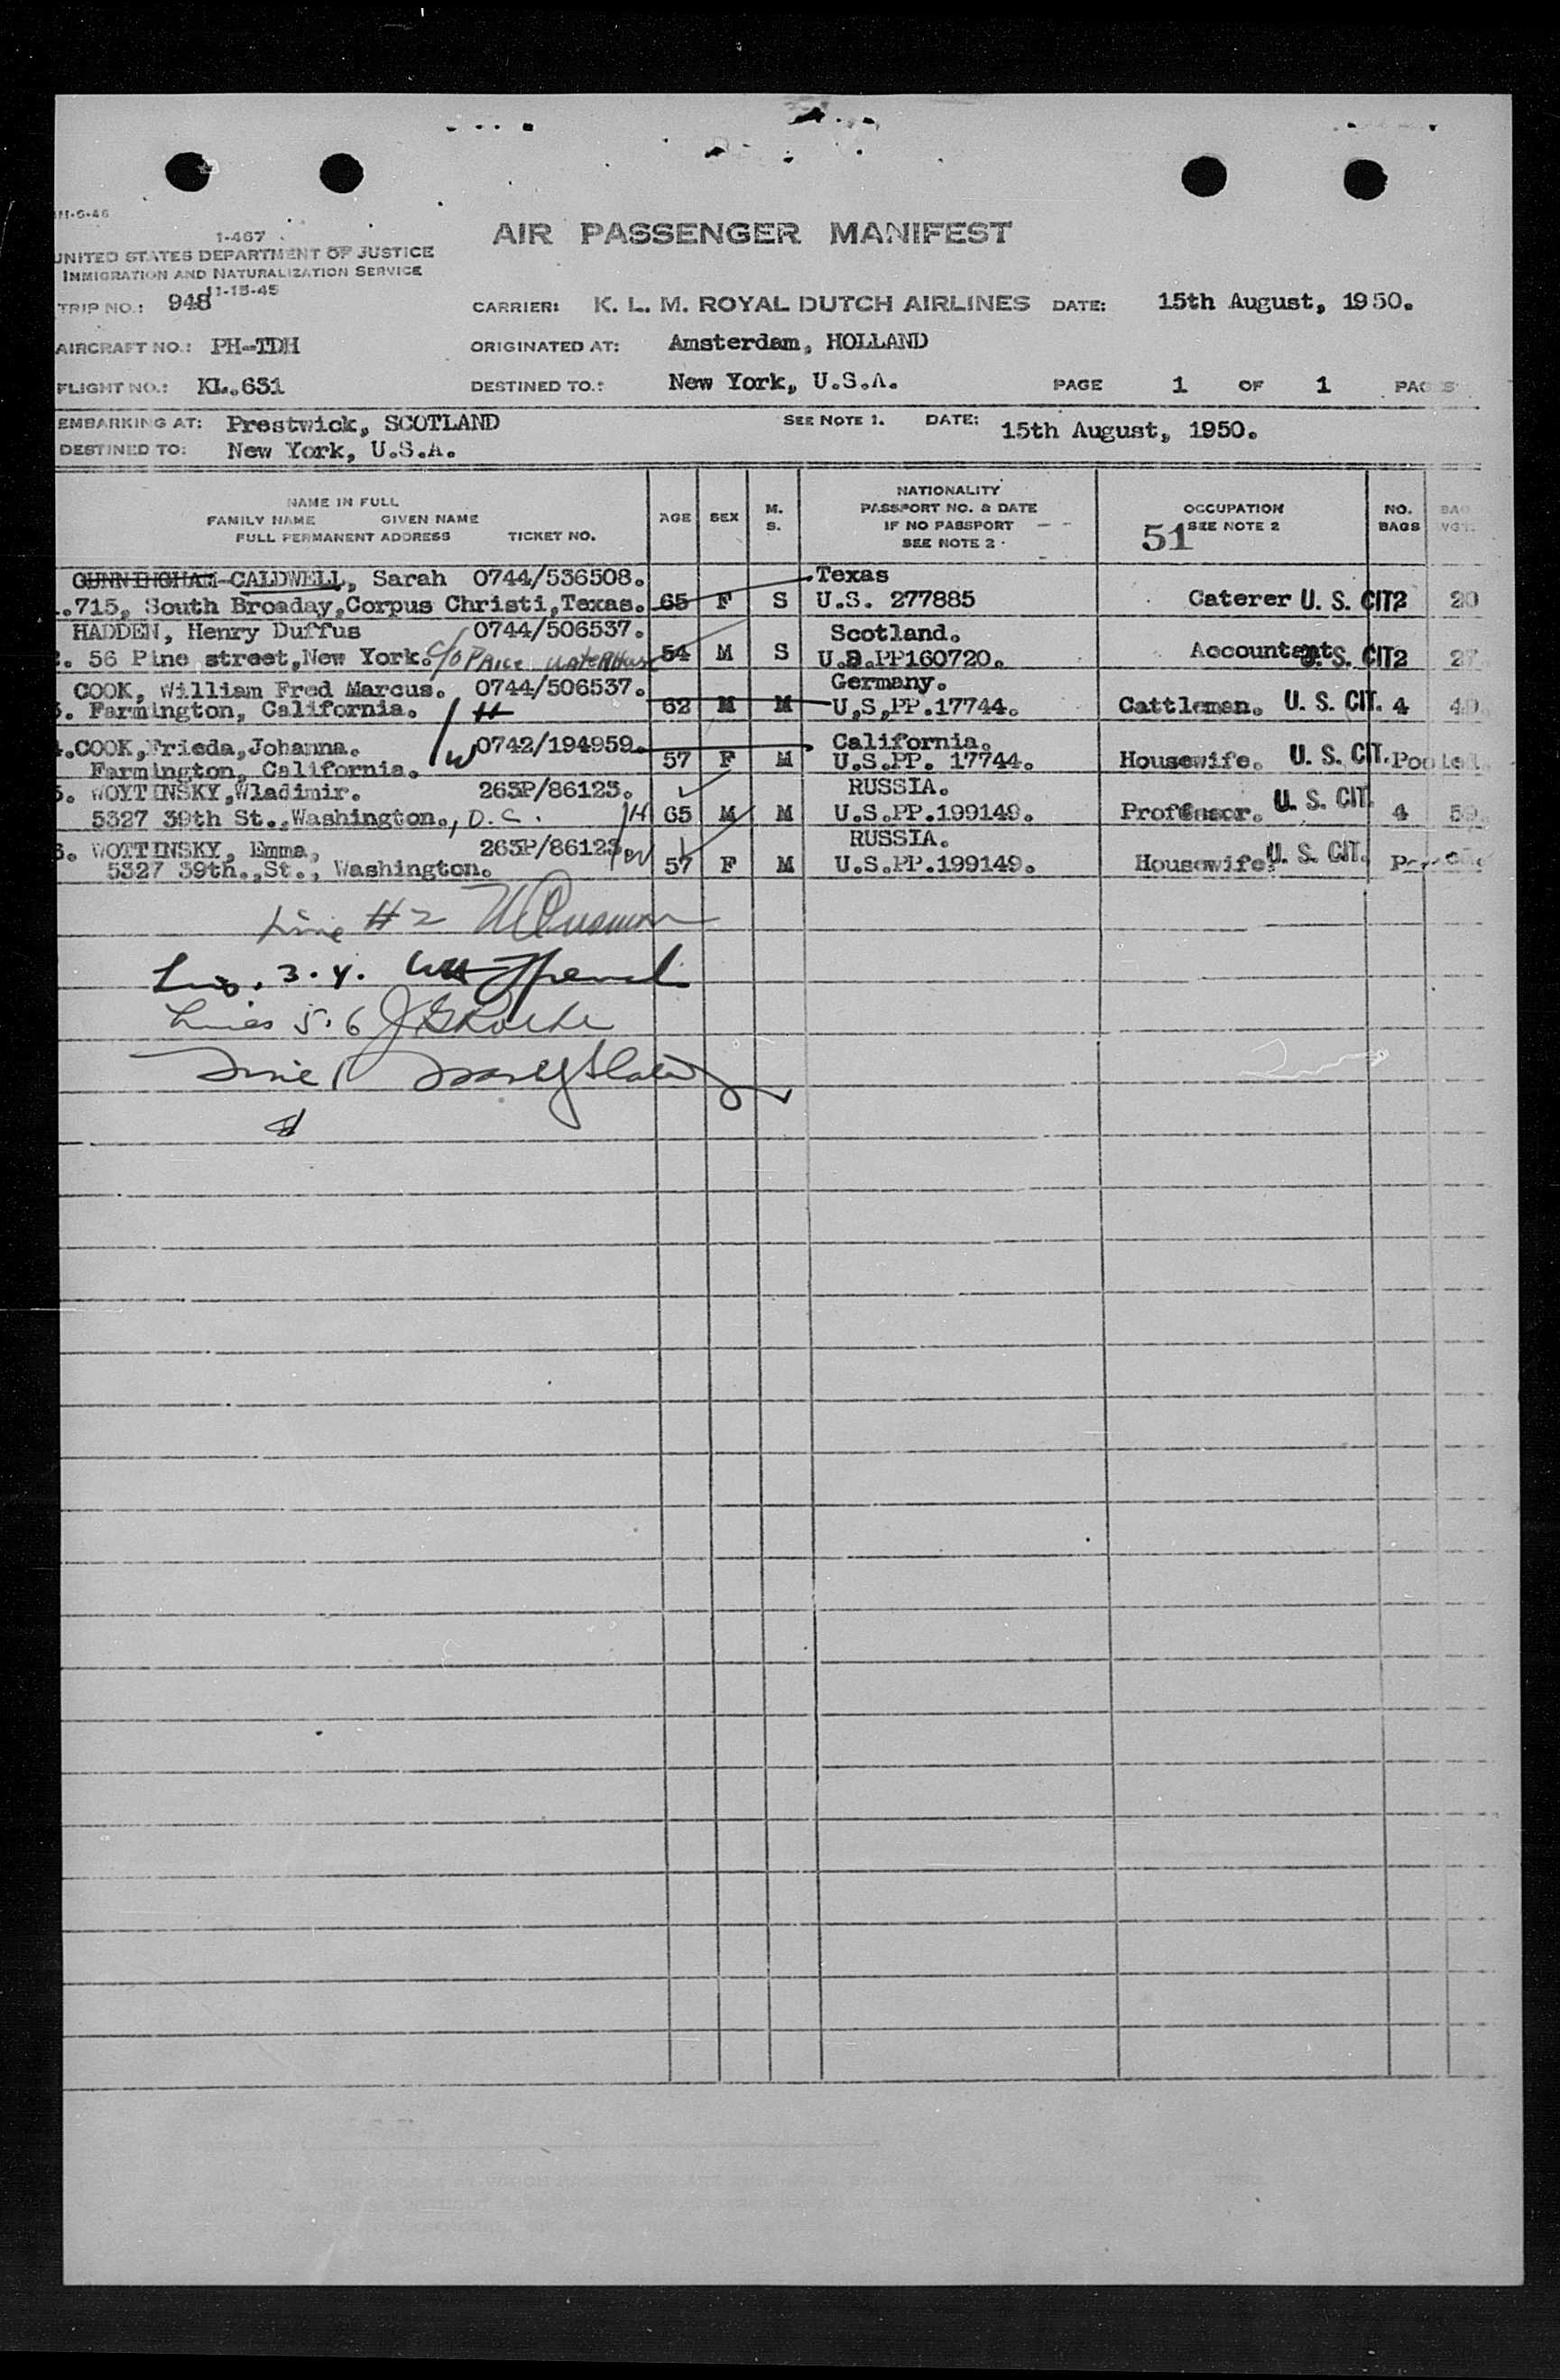 11-6-46
1-467
UNITED STATES DEPARTMENT OF JUSTICE
IMMIGRATION AND NATURALIZATION SERVICE
11-15-45
AIR PASSENGER MANIFEST
TRIP NO.: 948 CARRIER: K. L. M. ROYAL DUTCH AIRLINES DATE: 15th August, 1950.
AIRCRAFT NO.: PH-TDH ORIGINATED AT: Amsterdam, HOLLAND
FLIGHT NO.: KL.631 DESTINED TO.: New York, U.S.A. PAGE 1 OF 1 PAGES
EMBARKING AT: Prestwick, SCOTLAND SEE NOTE 1. DATE: 15th August, 1950.
DESTINED TO: New York, U.S.A.
NAME IN FULL
FAMILY NAME GIVEN NAME
FULL PERMANENT ADDRESS TICKET NO.
AGE SEX M. S.
NATIONALITY
PASSPORT NO. & DATE
IF NO PASSPORT
SEE NOTE 2
OCCUPATION
SEE NOTE 2
51
NO. BAGS
BAG WGT.
CUNNINGHAM-CALDWELL, Sarah 0744/536508. Texas
.715, South Broaday,Corpus Christi,Texas. 65 F S U.S. 277885 Caterer U. S. CIT 2 20
HADDEN, Henry Duffus 0744/506537. Scotland.
. 56 Pine street,New York. c/o PRICE WATERHOUSE 54 M S U.S.PP160720. Accountant U. S. CIT 2 27.
COOK, William Fred Marcus. 0744/506537. Germany.
. Farmington, California. H 62 M M U,S,PP.17744. Cattleman. U. S. CIT. 4 40.
.COOK,Frieda,Johanna. W 0742/194959. California.
Farmington, California. 57 F M U.S.PP. 17744. Housewife. U. S. CIT. Pooled.
5. WOYTINSKY,Wladimir. 263P/86123. RUSSIA.
5327 39th St.,Washington., D.C. H 65 M M U.S.PP.199149. Professor. U. S. CIT. 4 59.
6. WOTTINSKY, Emma, 263P/86123. W RUSSIA.
5327 39th.,St., Washington. 57 F M U.S.PP.199149. Housewife. U. S. CIT. Pooled.
Line #2
3.4.
Lines 5.6
Line 1